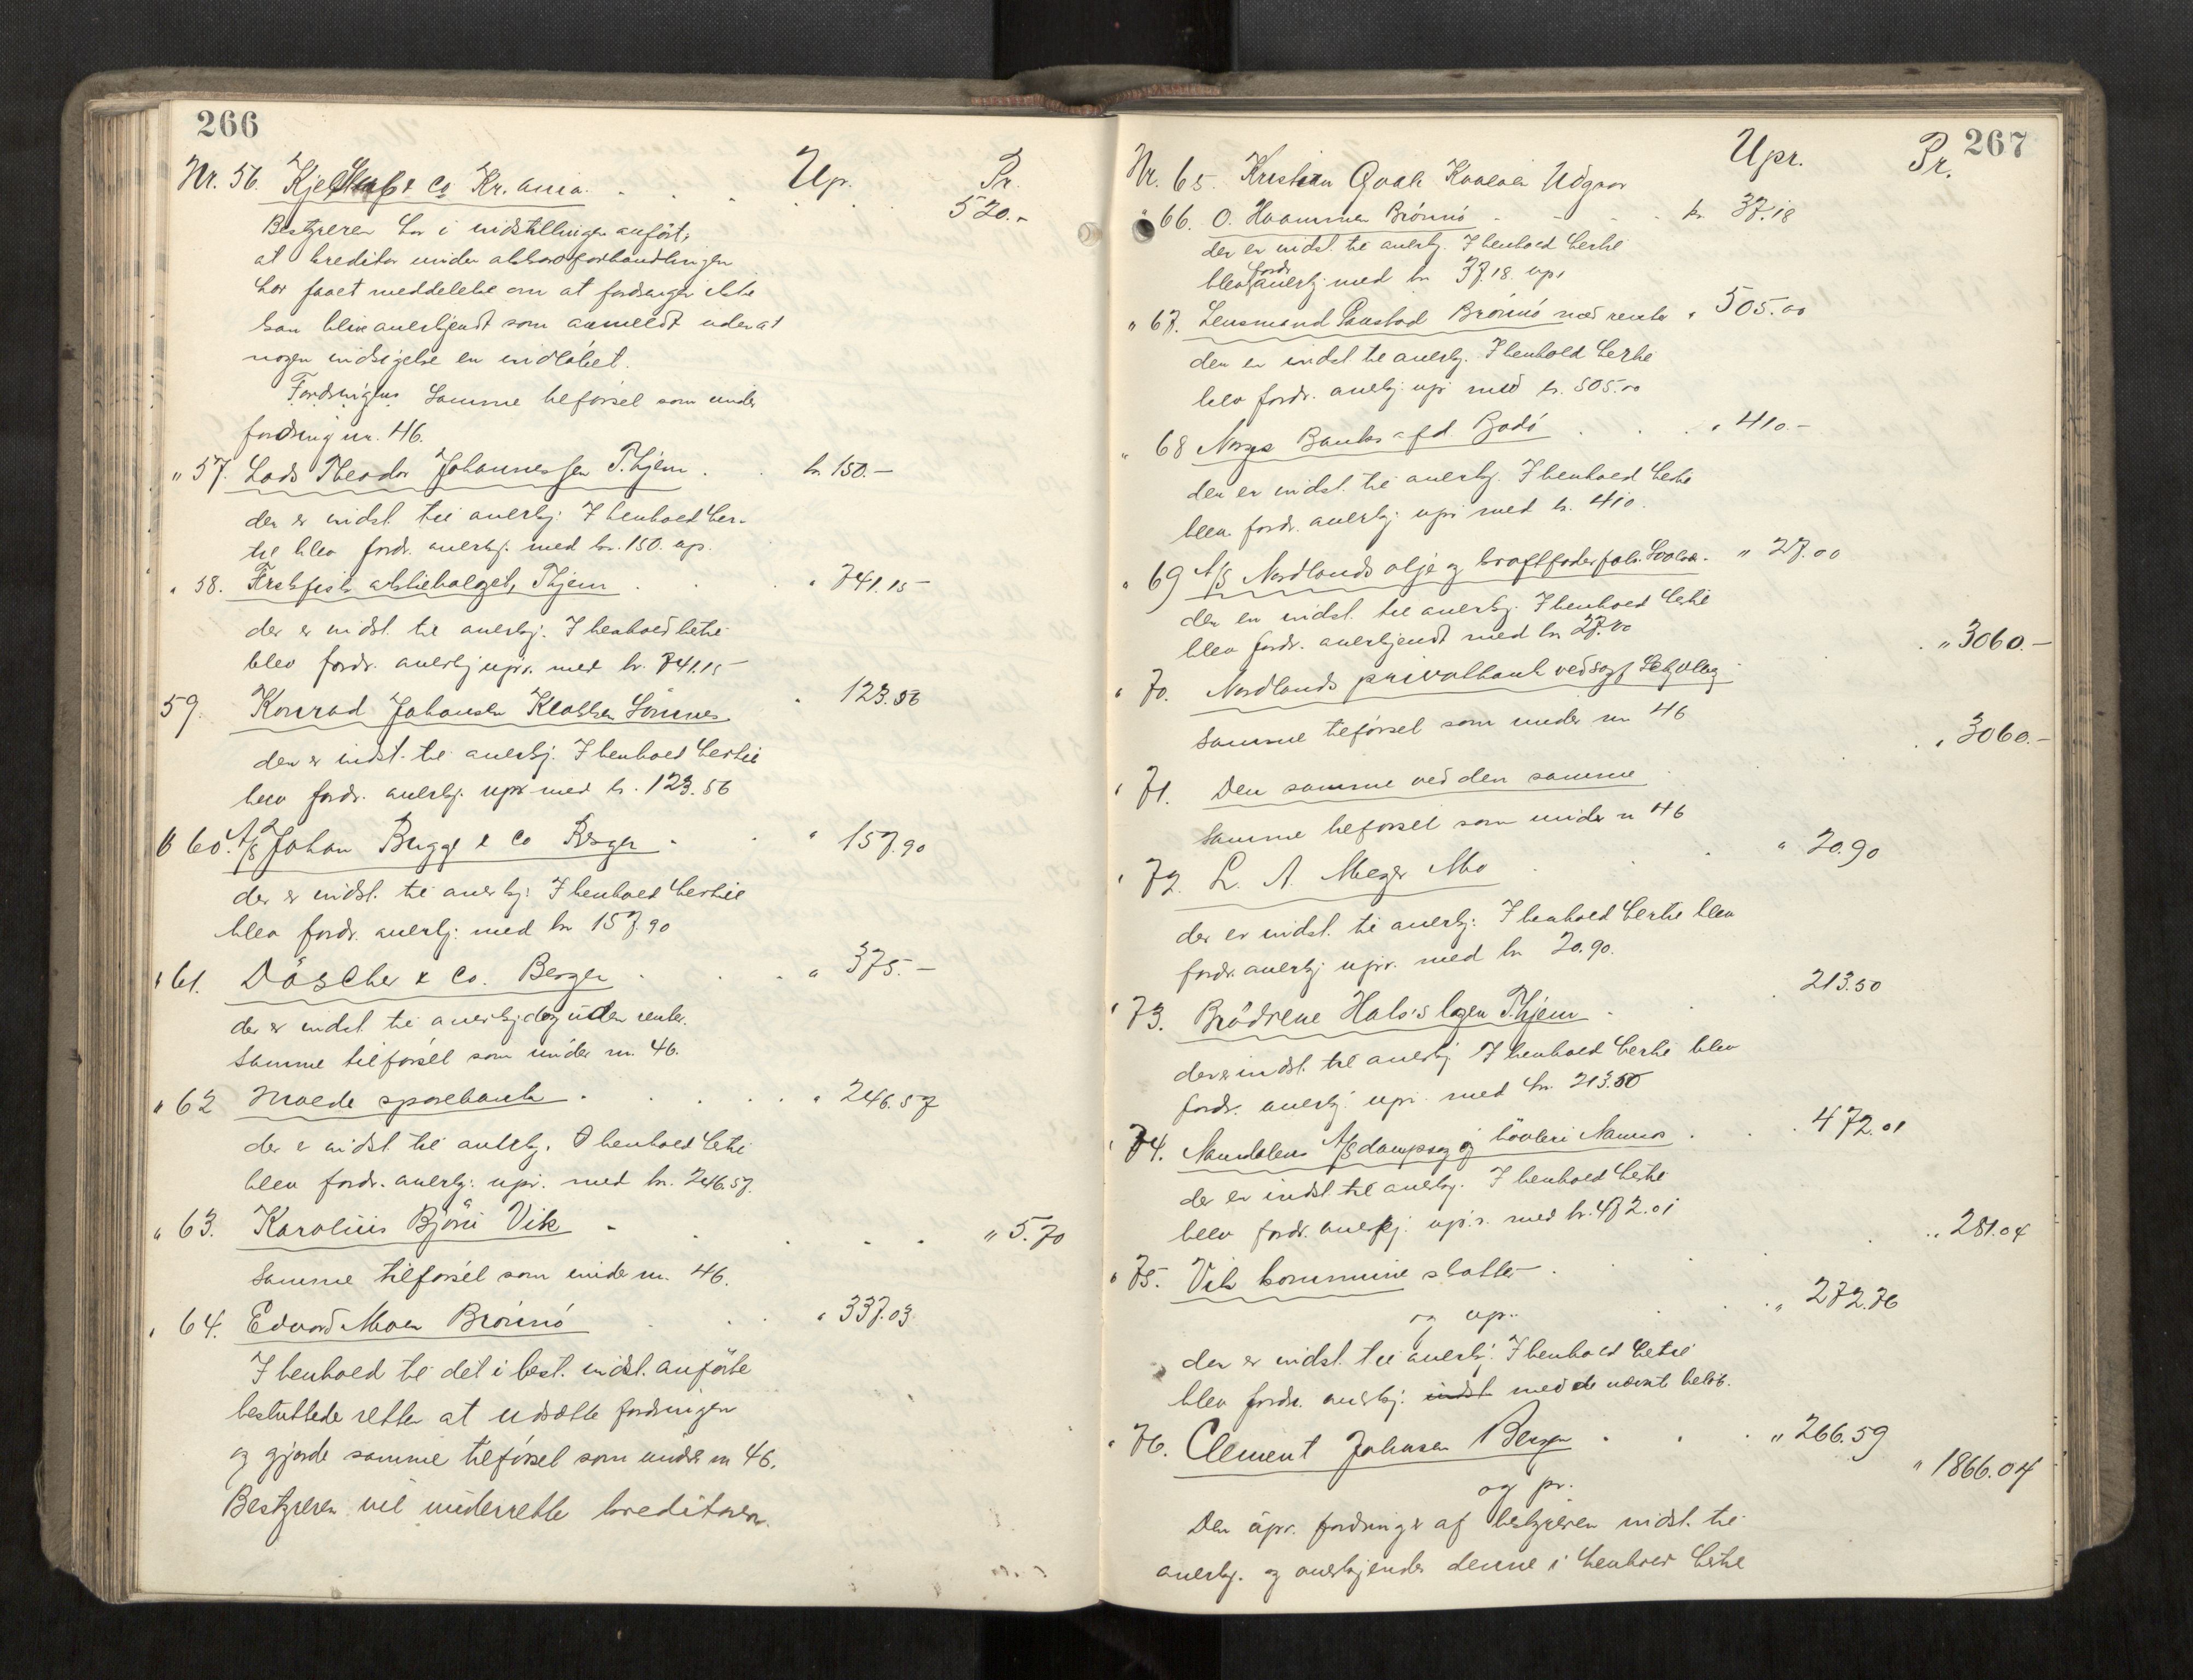 266
Nr. 56. & Co Kr.ania. Up. Pr.
520.-
Bestyreren har i indstillingen anført,
at kreditor under akkordforhandlingen
har faaet meddelelse om at fordringen ikke
kan blive anerkjendt som anmeldt uden at
nogen indsigelse er indløbet.
Fordringen Samme tilførsel som under
fordring nr. 46.
" 57. Lods Theodor Johannessen T.hjem. kr. 150.-
der er indst. til anerkj. I henhold her-
til blev fordr. anerkj. med kr. 150. up.
" 58. Ferskfisk aktieselskapet, T.hjem " 741.15
der er indst. til anerkj. I henhold hertil
blev fordr. anerkj upr. med kr. 741.15
59. Konrad Johansen Sømnes " 123.56
der er indst. til anerkj. I henhold hertil
blev fordr. anerkj. upr med kr. 123.56
" 60. A/S Johan Bugge & Co Bergen " 157.90
der er indst. til anerkj. I henhold hertil
blev fordr. anerkj. med kr 157.90
" 61. Döscher & Co. Bergen " 375.-
der er indst til anerkj dog uden renter.
Samme tilførsel som under nr. 46.
" 62 sparebank " 246.57
der er indst til anerkj. I henhold hertil
blev fordr. anerkj. upr. med kr. 246.57.
" 63. Karolius Vik " 5.70
Samme tilførsel som under nr. 46.
" 64. Edvard Moen Brønnø " 337.03
I henhold til det i best. indst. anførte
besluttede retten at udsætte fordringen
og gjorde samme tilførsel som under nr 46.
Bestyreren vil underrette kreditoren.
267
Upr. Pr.
Nr. 65. Kristian
" 66. O. Haammer Brønnø kr 37.18
der er indst. til anerkj. I henhold hertil
blev fordr anerkj. med kr 37.18. upr
" 67. Lensmand Brønnø med renter " 505.00
den er indst til anerkj. I henhold hertil
blev fordr. anerkj upr med kr. 505.00
" 68 Norges Banks afd. Bodø " 410.-
den er indst. til anerkj. I henhold hertil
blev fordr. anerkj upr med kr. 410.
" 69 A/S Nordlands olje og kraftfoderfabr. " 27.00
den er indst. til anerkj. I henhold hertil
blev fordr. anerkjendt med kr 27.00
" 70. Nordlands privatbank ved " 3060.-
Samme tilførsel som under nr 46
" 71. Den samme ved den samme " 3060.-
Samme tilførsel som under nr 46
" 72. L. A. Meyer Mo " 20.90
der er indst. til anerkj. I henhold hertil blev
fordr. anerkj upr. med kr 20.90.
" 73. Brødrene T.hjem 213.50
der er indst. til anerkj I henhold hertil blev
fordr. anerkj upr. med kr. 213.50
" 74. Namdalens A/S dampsag og høvleri Namsos 472.01
der er indst. til anerkj. I henhold hertil
blev fordr. anerkj. upr. med kr. 472.01
" 75. Vik kommune skatter " 281.04
og up. " 272.76
den er indst. til anerkj. I henhold hertil
blev fordr. anerkj. indst med de nævnte beløb.
" 76. Clement Johnsen Bergen " 266.59
og pr. " 1866.04
Den upr. fordring er af bestyreren indst. til
anerkj. og anerkjendes denne i henhold hertil